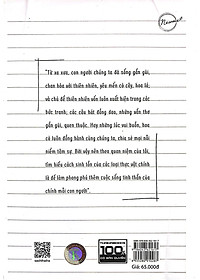 "Từ xa xưa, con người chúng ta đã sống gần gũi,
chan hòa với thiên nhiên, yêu mến cỏ cây, hoa lá;
và chủ đề thiên nhiên vẫn luôn xuất hiện trong các
bức tranh; các câu hát đồng dao, những vần thơ
gần gũi, quen thuộc. Hay những lúc vui buồn, hoa
cỏ luôn đồng hành cùng chúng ta, chia sẻ mọi nỗi
niềm tâm sự. Bởi vậy nên theo quan niệm của tôi,
tìm hiểu cách sinh tồn của các loại thực vật chính
là để làm phong phú thêm cuộc sống tinh thần của
chính mỗi con người".
100%
Giá: 65.000đ